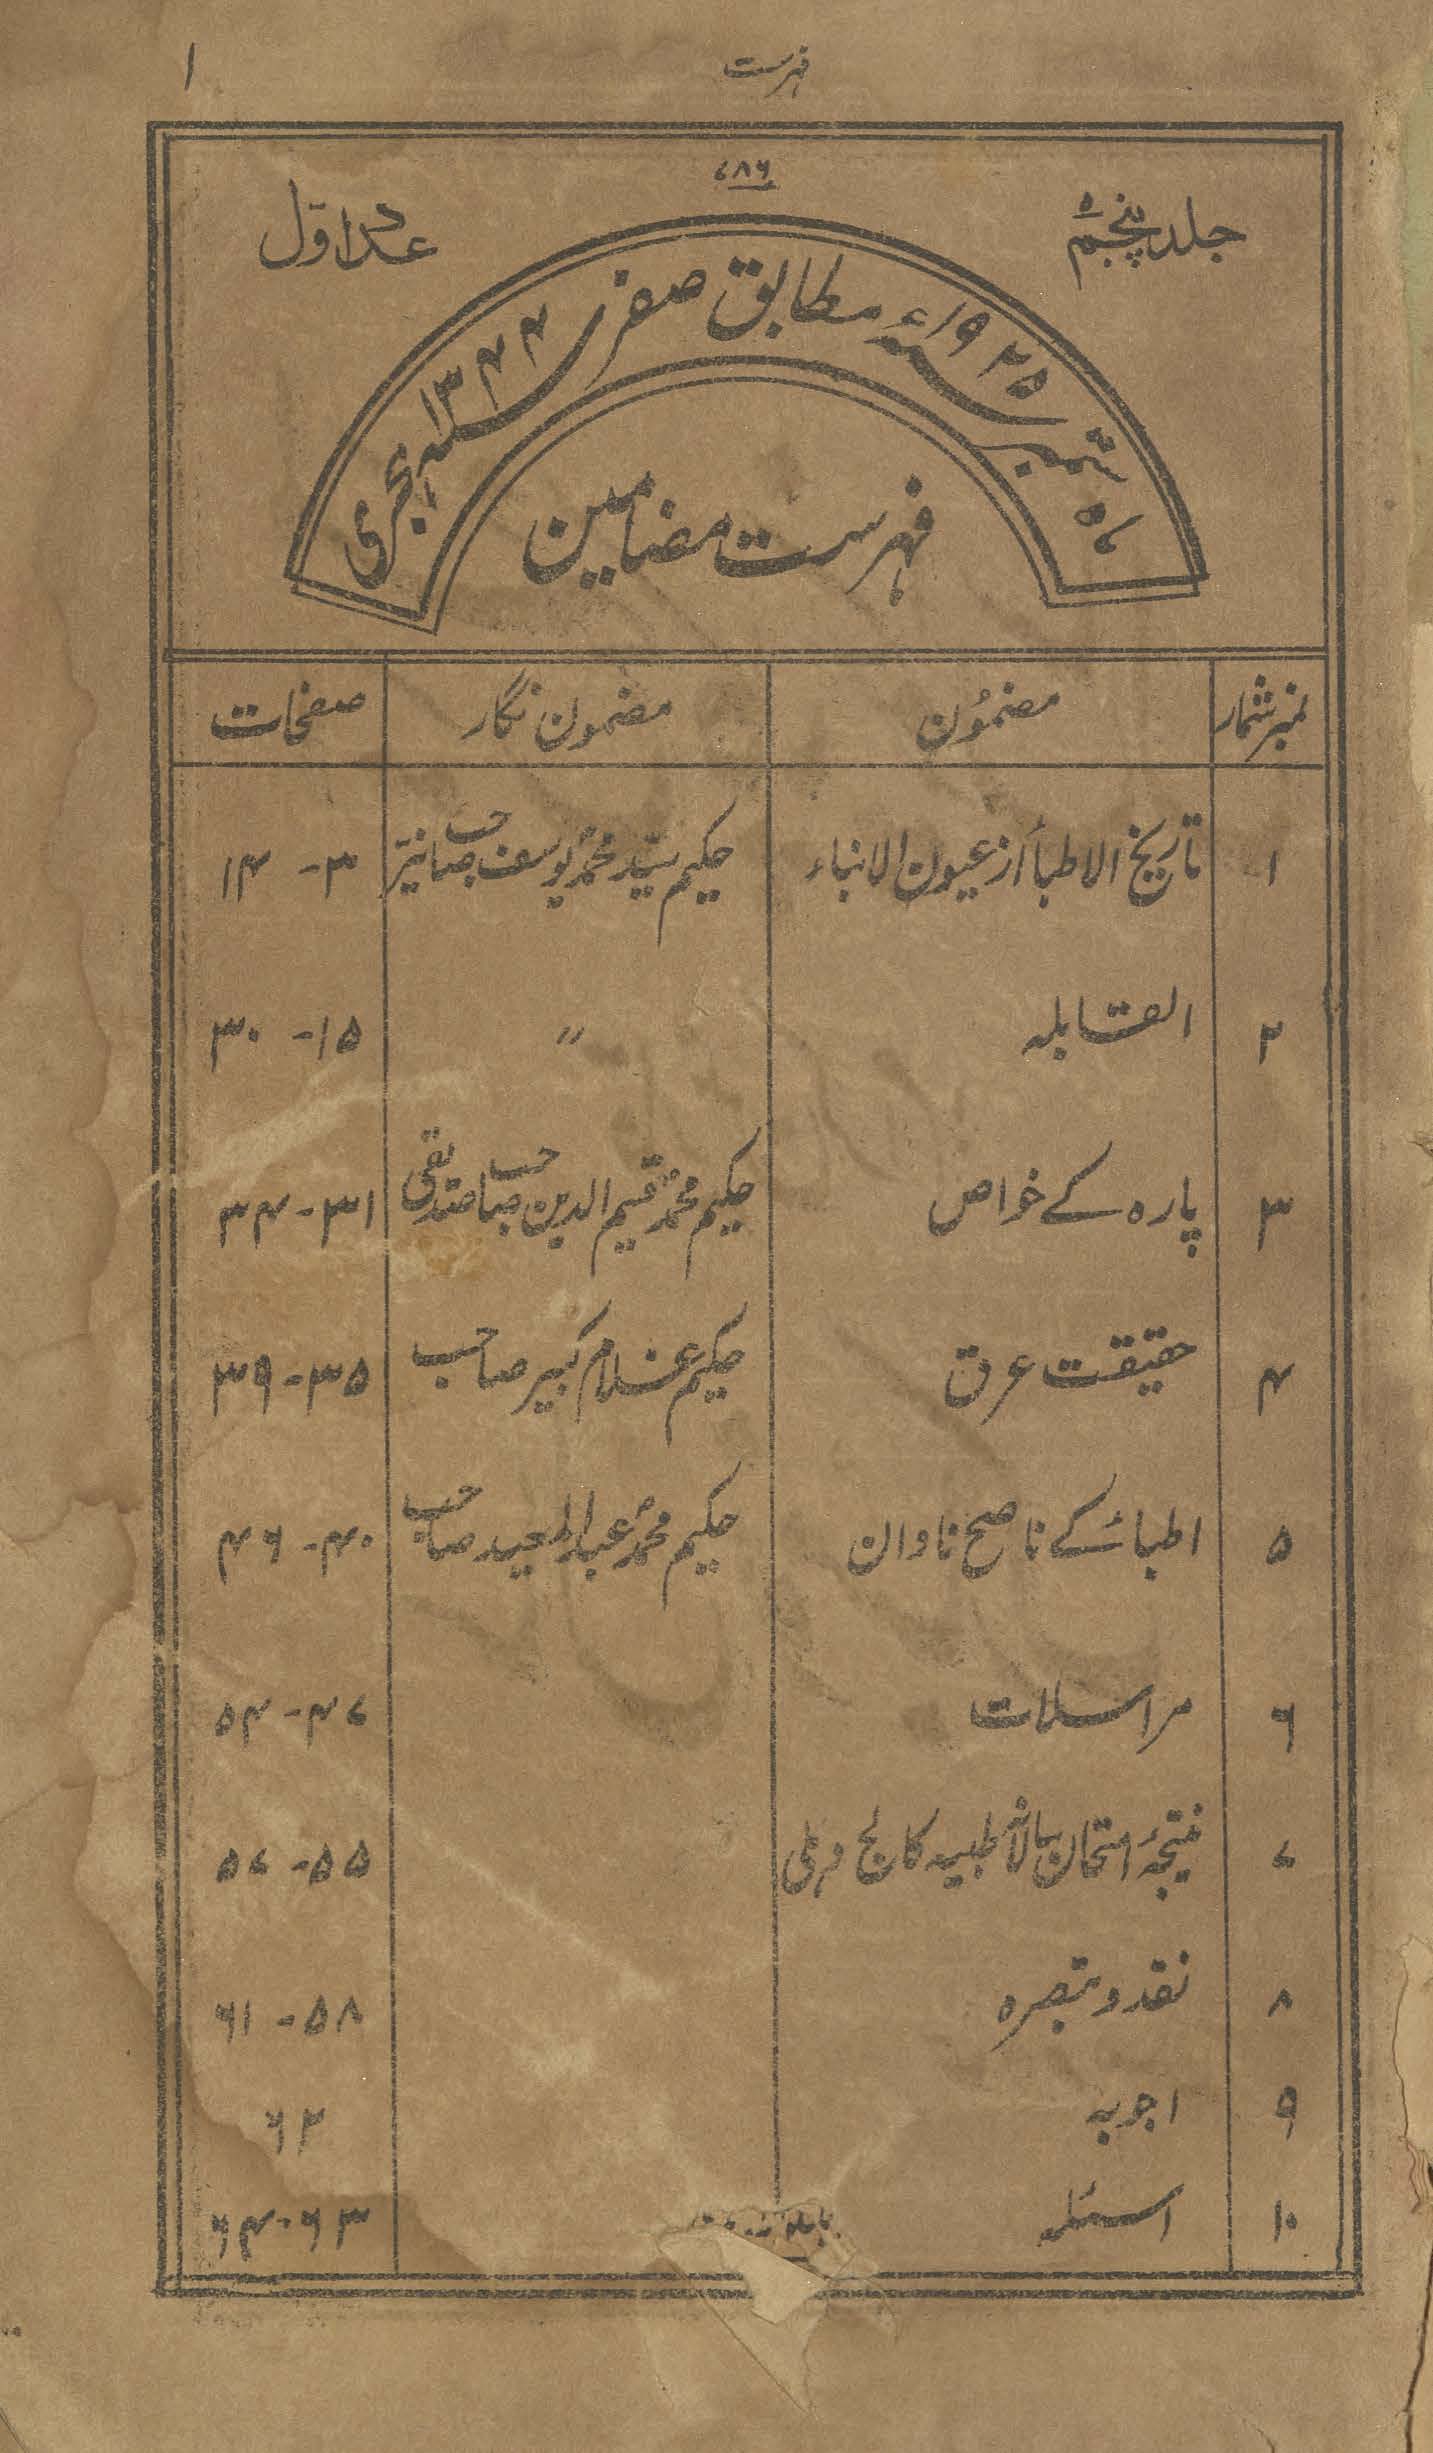 فہرست ۱
۷۸۶
جلد پنجم عدد اول
ماہ ستمبر ۱۹۲۵ء مطابق صفر ۱۳۴۴ ہجری
فہرست مضامین
نمبر شمار مضمون مضمون نگار صفحات
۱ تاریخ الاطبأ از عیون الانباء حکیم سید محمد یوسف صاحب نیّر ۳ - ۱۴
۲ القابلہ 〃 ۱۵ - ۳۰
۳ پارہ کے خواص حکیم محمد قیم الدین صاحب صدیقی ۳۱ - ۳۴
۴ حقیقت عرق حکیم غلام کبیر صاحب ۳۵ - ۳۹
۵ اطباء کے ناصح نادان حکیم محمد عبد المعید صاحب ۴۰ - ۴۶
۶ مراسلات ۴۷ - ۵۴
۷ نتیجۂ امتحان سالانہ طبیہ کالج دہلی ۵۵ - ۵۷
۸ نقد و تبصرہ ۵۸ - ۶۱
۹ اجوبہ ۶۲
۱۰ اسئلہ ۶۳ - ۶۴